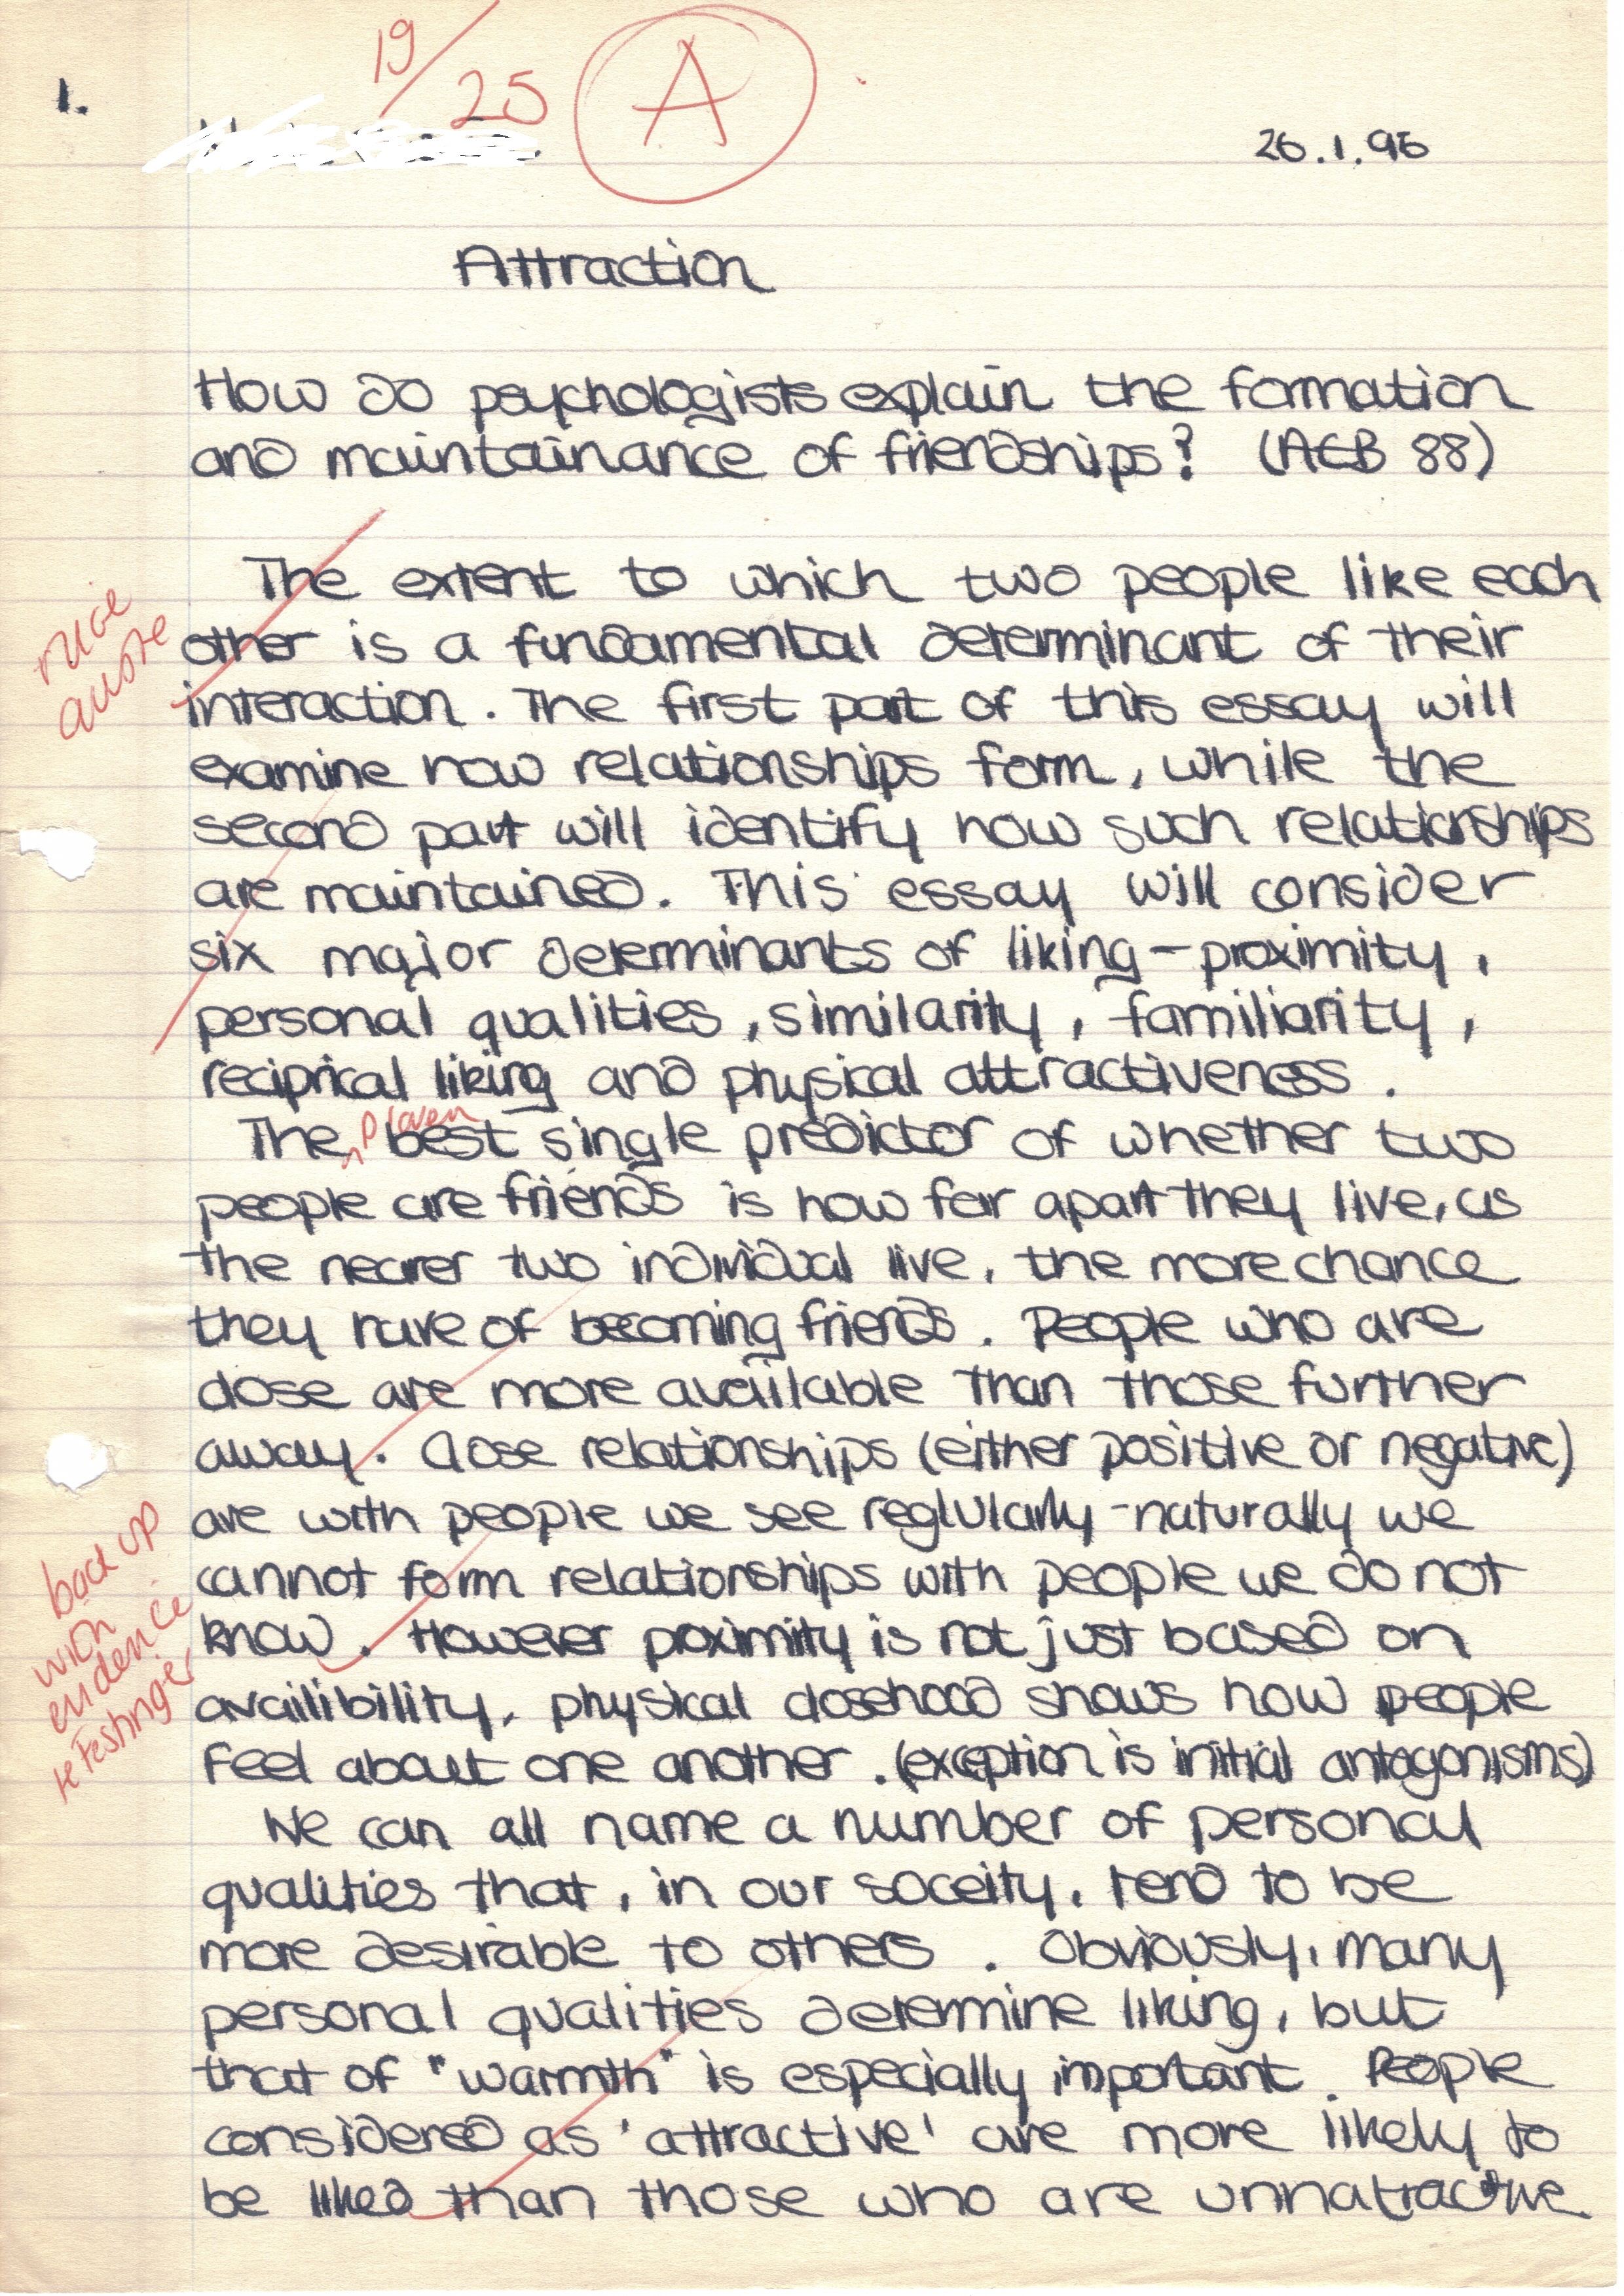 19/25 A
1.
26.1.96
Attraction
How do psychologists explain the formation
and maintainance of friendships? (AEB 88)
The extent to which two people like each
nice
quote
other is a fundamental determinant of their
interaction. The first part of this essay will
examine how relationships form, while the
second part will identify how such relationships
are maintained. This essay will consider
six major determinants of liking - proximity,
personal qualities, similarity, familiarity,
reciprical liking and physical attractiveness.
proven
The best single predictor of whether two
people are friends is how far apart they live, as
the nearer two individual live, the more chance
they have of becoming friends. People who are
close are more available than those further
away. Close relationships (either positive or negative)
are with people we see reglularly - naturally we
back up
with
evidence
ie Festinger
cannot form relationships with people we do not
know. However proximity is not just based on
availibility, physical closehood shows how people
feel about one another. (exception is initial antagonisms)
We can all name a number of personal
qualities that, in our soceity, tend to be
more desirable to others. Obviously, many
personal qualities determine liking, but
that of "warmth" is especially important. People
considered as 'attractive' are more likely to
be liked than those who are unnatractive.